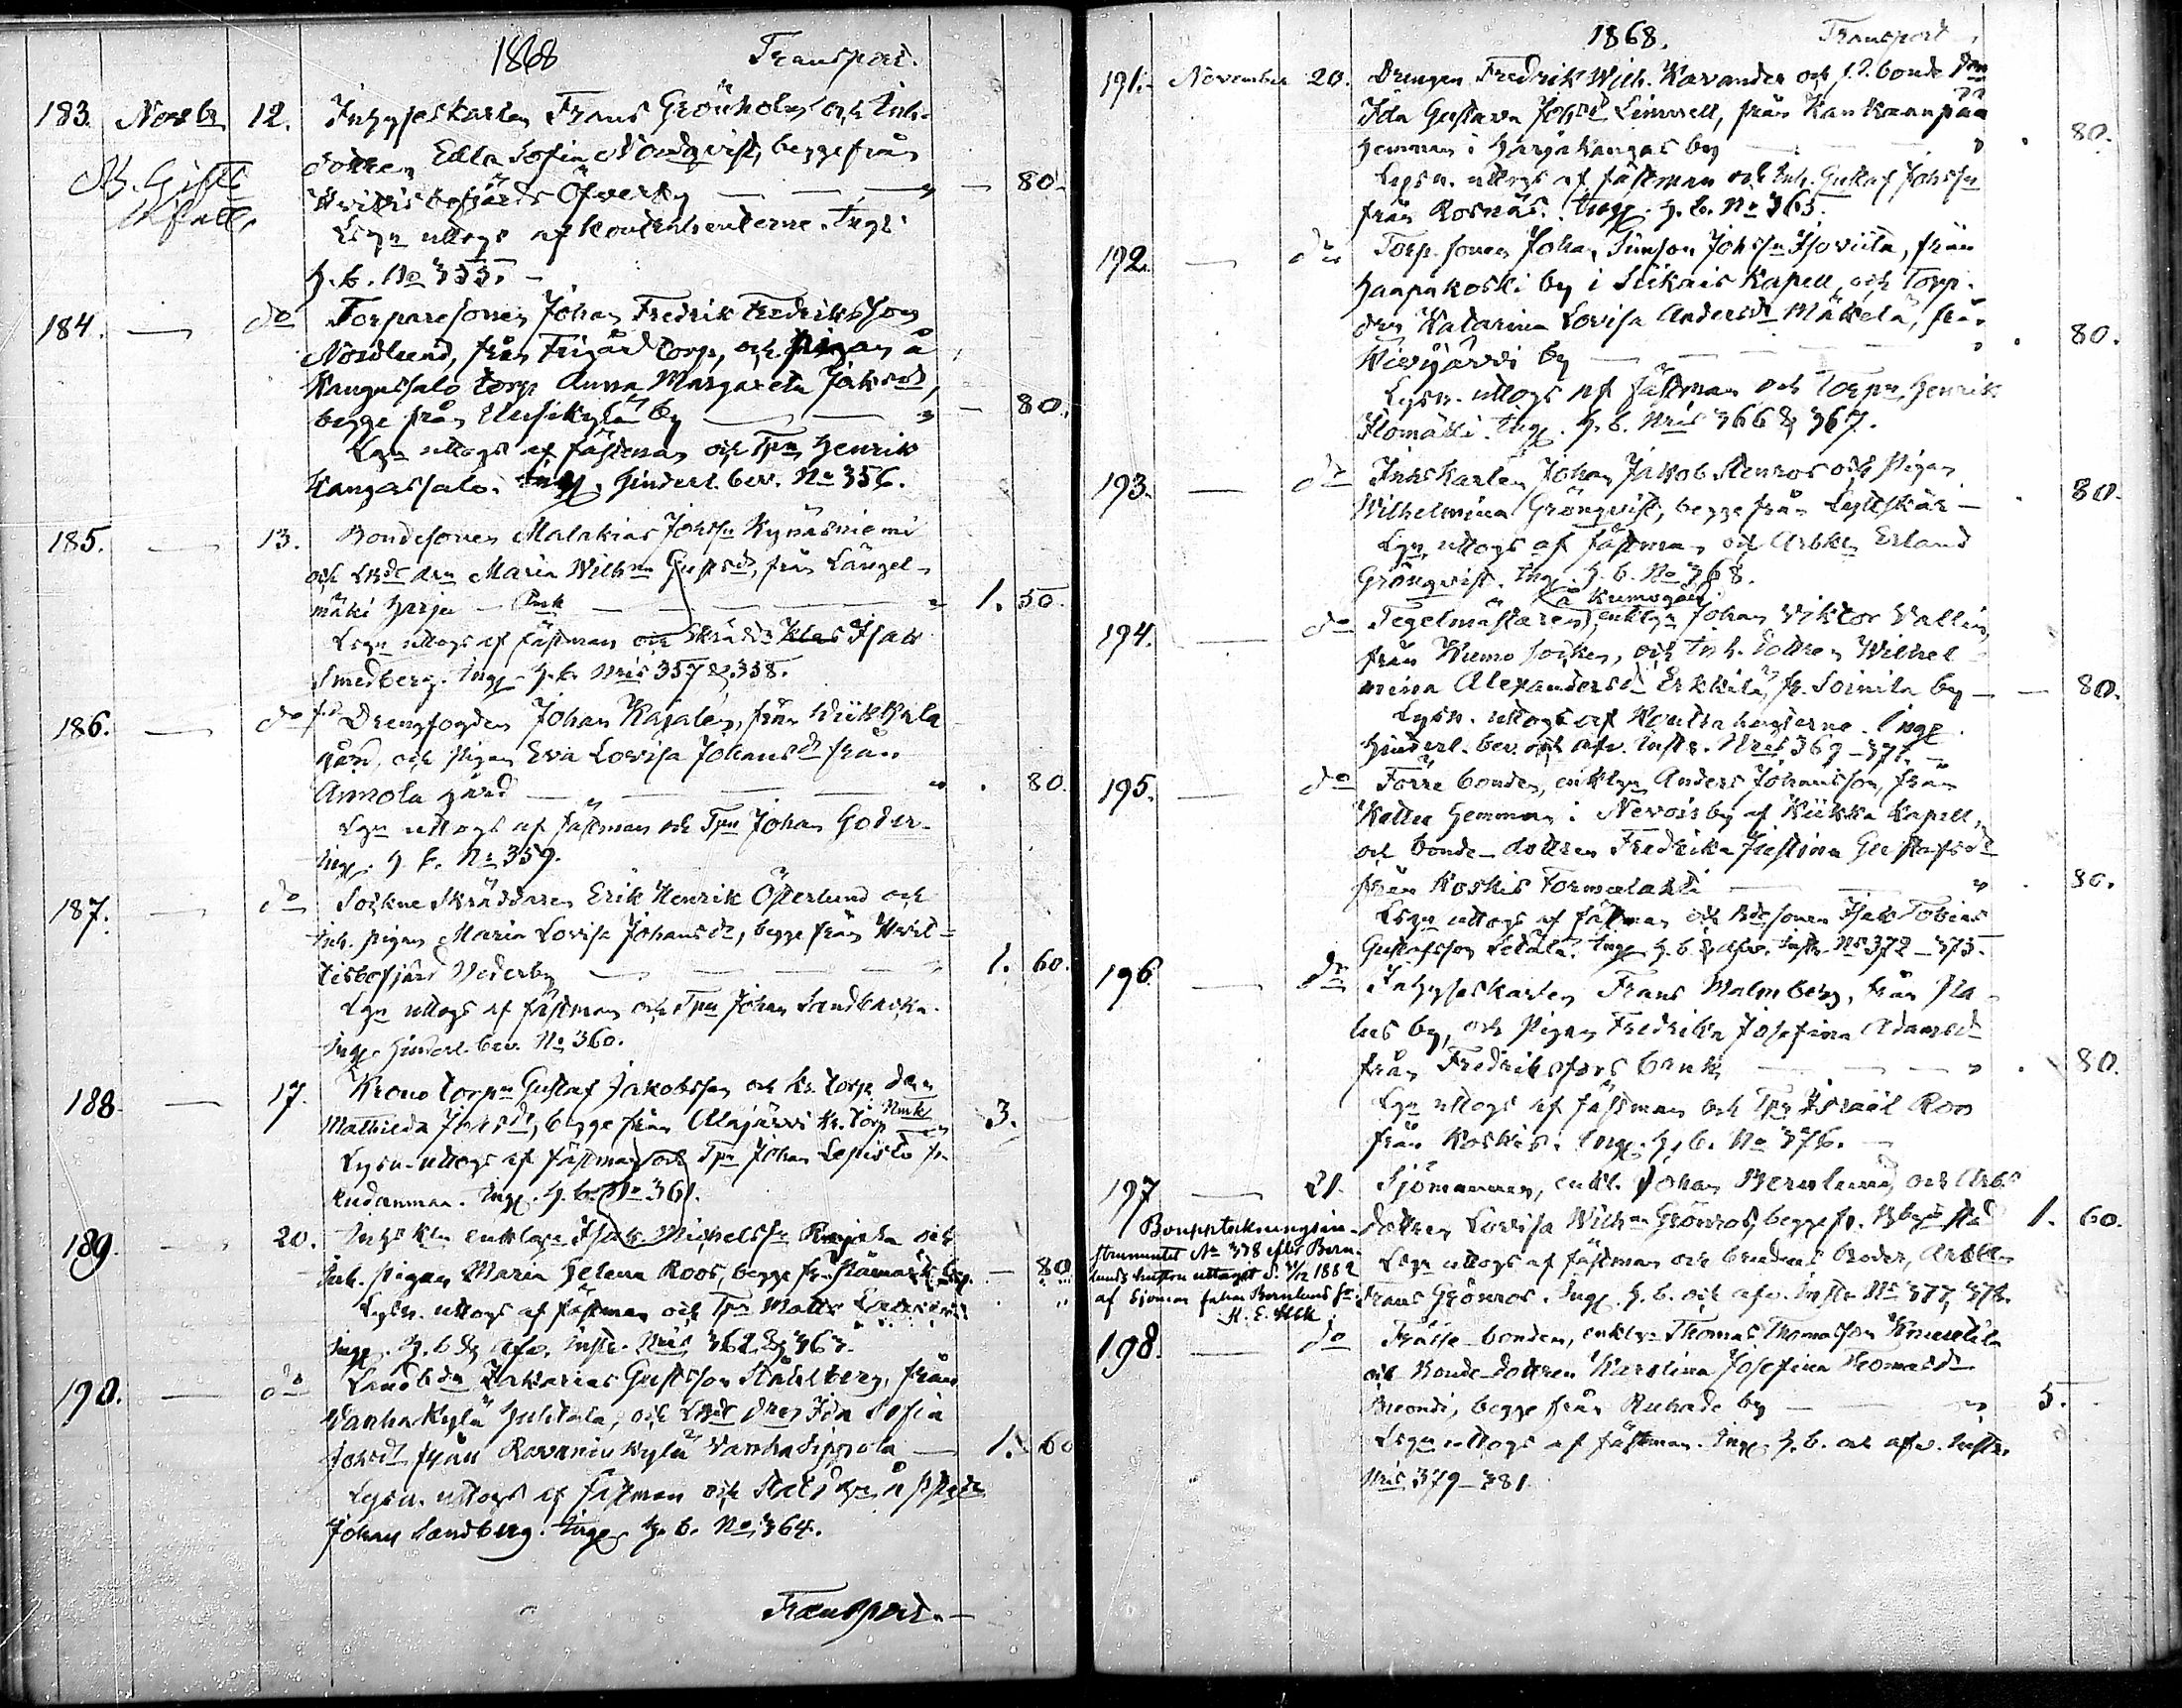 1868 Transport.
183. Novbr 12. Inhyseskarlen Frans Grönholm och Inh.
dottren Edla Sofia Nordqvist, begge från
Hvittisbofjärds Öfverby — — — " — 80.
NB. Gifte
Lysn uttogs af Kontrahenterne. Ingf.
H. b. No 355. —
184. — do Torparesonen Johan Fredrik Fredriksson
Nordlund, från torp, och pigan å
Kangassalo torp Anna Margareta Jaksdr,
begge från by — — " — 80.
Lysn uttogs af fästman och Tpn Henrik
Kangassalo. Ingf. Hinderl. bev. No 356.
185. — 13. Bondesonen Malakias Johsson Kynäsniemi
och Lbde drn Maria Wilhna Gustsdr, från Längel-
mäki Harju — Enk — — " 1. 50
Lysn uttogs af fästman och Skrädd. Klas Isak
Smedberg. Ingf. H. b. Nris 357 & 358.
186. — do f.d Drengfogden Johan Kajalén, från Wiikkala
gård, och pigan Eva Lovisa Johansdr från
Annola gård — — — " . 80.
Lysn uttogs af fästman och Tpn Johan Goder.
Ingf. H. b. No 359.
187. — do Sockneskräddaren Erik Henrik Österlund och
Inh. pigan Maria Lovisa Johansdr, begge från Hvit-
tisbofjärd Nederby — — " 1. 60.
Lysn uttogs af fästman och Tpn Johan Sandbacka.
Ingf. Hinderl. bev. No 360.
188. — 17. Krono torpn Gustaf Jakobsson och Kr. torp. drn
Mathilda Johsdr, begge från Alajärvi Kr. torp Nmk 3.
Lysn. uttogs af fästman och Tpn Johan Lepistö fr.
Ingf. H. b. No 361.
189. — 20. Inhs kln enklgn Isak Michelsson och
Inh. pigan Maria Helena Roos, begge fr. by. — 80
Lysn. uttogs af fästman och Tpn Matts
Ingf. H. b & afv. instr. Nris 362 & 363.
190. — do Landbdn Zakarias Gustsson Ståhlberg, från
Vanhakylä Juhtala, och Lbde drn Ida Sofia
Johsdr från Ravanin kylä Vanhasippola — 1. 60
Lysn. uttogs af fästman och
Johan Sandberg. Ingf. H. b. No 364.
Transport. —
1868. Transport
191. — November 20. Drengen Fredrik Wilh. Kavander och f.d. bonde drn
Ida Gustava Johsdr Linnvell, från Kankaanpää
hemman i Harjakangas by — — — " . 80.
Lysn. uttogs af fästman och Inh. Gustaf Johsson
från Rosnäs. Ingf. H. b. No 365.
192. — do Torp. sonen Johan Simson Johsson Isoviita, från
Haapakoski by i Siikais Kapell, och Torp.
drn Katarina Lovisa Andersdr Mäkelä, från
by — — — " . 80.
Lysn. uttogs af fästman och Torpn Henrik
Ilomäki. Ingf. H. b. Nris 366 & 367.
193. — do Inhs karlen Johan Jakob Stenros och Pigan
Wilhelmina Grönqvist, begge från Lyttskär — . 80.
Lysn uttogs af fästman och Arbkln Erland
Grönqvist. Ingf. H. b. No 368.
å Kumogård
194. — do Tegelmästaren, enklgn Johan Viktor Vallin,
från Kumo socken, och Inh. dottren Wilhel-
mina Alexandersdr Erkkilä, fr. Soinila by — — 80.
Lysn. uttogs af Kontrahenterne. Ingf.
Hinderl. bev. och afv. instr. Nris 369–371. —
195. — do Förre bonden, enklgn Anders Johansson, från
Kallia hemman i Nevois by af Kiikka Kapell,
och bonde-dottren Fredrika Justina Gustafsdr
från Koskis Tormälahti — " . 80.
Lysn uttogs af fästman och Bdesonen Isak Tobias
Gustafsson Letala. Ingf. H. b. & afv. instr. No 372–375.
196. — do Inhyseskarlen Frans Malmberg, från
by, och Pigan Fredrika Josefina Adamsdr
från Fredriksfors bruk — — " . 80.
Lysn uttogs af fästman och Tpn Israël Roos
från Koskis. Ingf. H. b. No 376. —
197 — 21. Sjömannen, enkl. Johan Bernlund, och Arbs
dottren Lovisa Wilhna Grönros, begge fr. Bbgs stad 1. 60.
Lysn uttogs af fästman och brudens broder, Arbkln
Frans Grönros. Ingf. H. b. och afv. instr. No 377, 378.
Bouppteckningsin-
strumentet No 378 efter Bern-
lunds hustru uttaget d. 21/12 1882
af Sjöman Johan Bernlund gm
K. E. Alck.
198. — do Frälse-bonden, enklgn Thomas Thomasson Knuutila
och Bonde-dottren Karolina Josefina Thomasdr
begge från Ruhade by — — " 5. —
Lysn uttogs af fästman. Ingf. H. b. och afv. instr.
Nris 379–381.